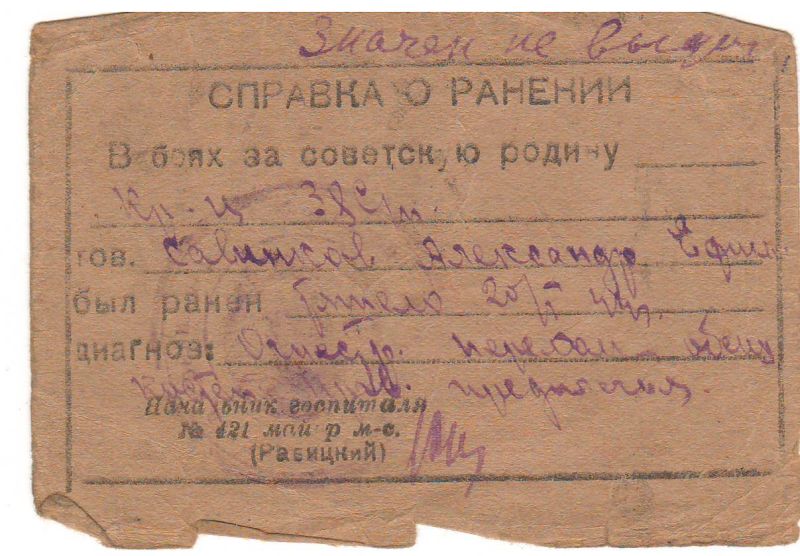 Значек не выдан
СПРАВКА О РАНЕНИИ
В боях за советскую родину
Кр-ц
тов. Савинков Александр Ефим.
был ранен тяжело 20/I 44г.
диагноз: Огнестр. перелом обеих
костей предплечья.
Начальник госпиталя
№ 421 майор м-с.
(Равицкий)